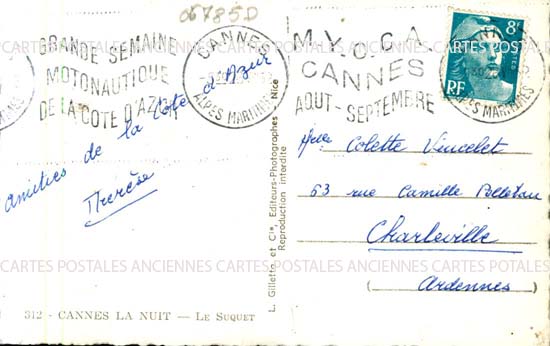 06785D
GRANDE SEMAINE
MOTONAUTIQUE
DE LA COTE D'AZUR
CANNES
ALPES MARITIMES
M.Y.C.C.A.
CANNES
AOUT-SEPTEMBRE
8F
POSTES
RF
ALPES MARITIMES
amitiés de la Côte d'Azur
Thérèse
L. Gilletta et Cie, Editeurs-Photographes - Nice
Reproduction interdite
Colette Vincelet
63 rue Camille Pelletan
Charleville
(Ardennes)
CARTES POSTALES ANCIENNES CARTES POSTALES ANCIENNES CARTES POSTALES
CARTES POSTALES ANCIENNES CARTES POSTALES ANCIENNES CARTES POSTALES
312 - CANNES LA NUIT — LE SUQUET